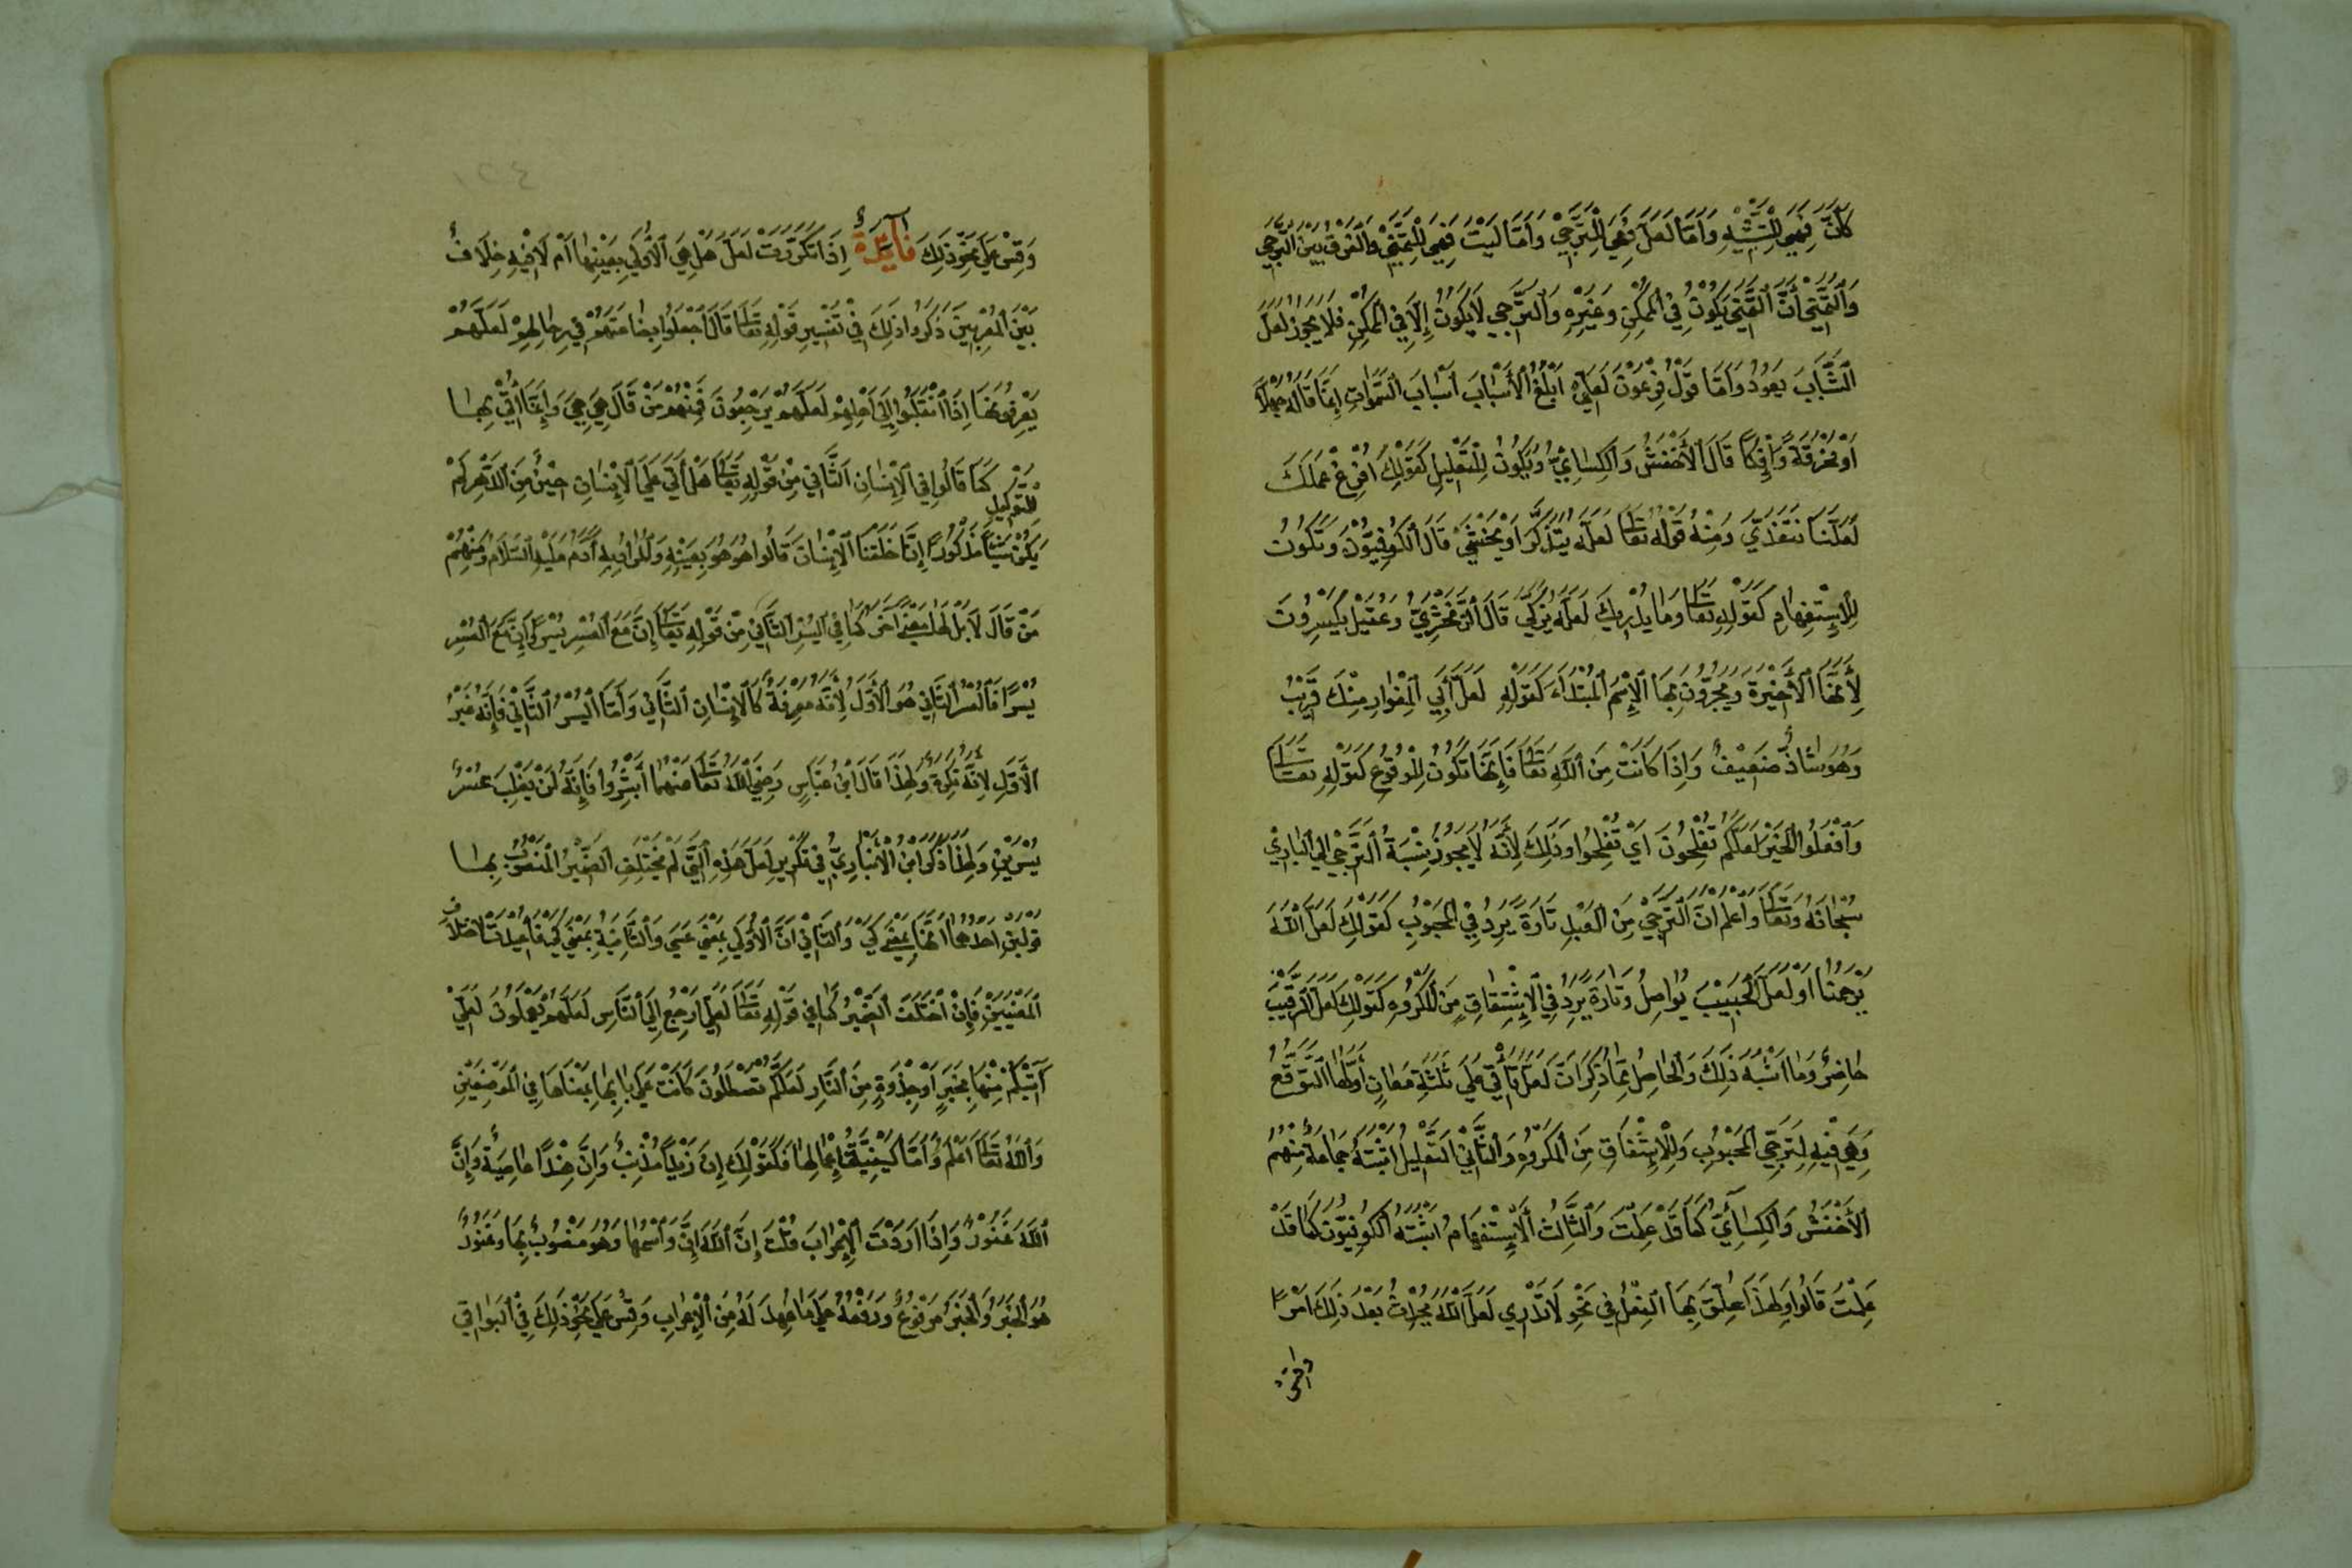 كَأَنَّ فَهِيَ لِلتَّشْبِيْهِ وَأَمَّا لَعَلَّ فَهِيَ لِلتَّرَجِّيْ وَأَمَّا لَيْتَ فَهِيَ لِلتَّمَنِّيْ وَالْفَرْقُ بَيْنَ التَّرَجِّي
وَالتَّمَنِّيْ أَنَّ التَّمَنِّيَ يَكُوْنُ فِي الْمُمْكِنِ وَغَيْرِهِ وَالتَّرَجِّي لَا يَكُوْنُ إِلَّا فِي الْمُمْكِنِ فَلَا يَجُوْزُ لَعَلَّ
الشَّبَابَ يَعُوْدُ وَأَمَّا قَوْلُ فِرْعَوْنَ لَعَلِّيْ أَبْلُغُ الْأَسْبَابَ أَسْبَابَ السَّمٰوَاتِ إِنَّمَا قَالَهُ جَهْلًا
أَوْ مَخْرَقَةً وَإِفْكًا قَالَ الْأَخْفَشُ وَالْكِسَائِيُّ وَيَكُوْنُ لِلتَّعْلِيْلِ كَقَوْلِكَ أَفْرِغْ عَمَلَكَ
لَعَلَّنَا نَتَغَدَّيْ وَمِنْهُ قَوْلُهُ تَعَالٰى لَعَلَّهُ يَتَذَكَّرُ أَوْ يَخْشٰيْ قَالَ الْكُوْفِيُّوْنَ وَتَكُوْنُ
لِلْاِسْتِفْهَامِ كَقَوْلِهِ تَعَالٰى وَمَا يُدْرِيْكَ لَعَلَّهُ يَزَّكّٰيْ قَالَ الزَّمَخْشَرِيُّ وَعُقَيْلُ يَكْسِرُوْنَ
لِأَنَّهَا الْأَخِيْرَةَ وَيَجُرُّوْنَ بِهَا الْإِسْمَ الْمُبْتَدَاءَ كَقَوْلِهِ لَعَلَّ أَبِي الْمِغْوَارِ مِنْكَ قَرِيْبُ
وَهُوَ شَاذٌّ ضَعِيْفٌ وَإِذَا كَانَتْ مِنَ اللّٰهِ تَعَالٰى فَإِنَّهَا تَكُوْنُ لِلْوُقُوْعِ كَقَوْلِهِ تَعَالٰى
وَافْعَلُوا الْخَيْرَ لَعَلَّكُمْ تُفْلِحُوْنَ أَيْ تُفْلِحُوْا وَذٰلِكَ لِأَنَّهُ لَا يَجُوْزُ نِسْبَةُ التَّرَجِّيْ إِلَى الْبَارِيْ
سُبْحَانَهُ وَتَعَالٰى وَاعْلَمْ أَنَّ التَّرَجِّيْ مِنَ الْعَبْدِ تَارَةً يَرِدُ فِي الْمَحْبُوْبِ كَقَوْلِكَ لَعَلَّ اللّٰهَ
يَرْحَمُنَا أَوْ لَعَلَّ الْحَبِيْبَ يُوَاصِلُ وَتَارَةً يَرِدُ فِي الْاِشْتِفَاقِ مِنَ الْمَكْرُوْهِ كَقَوْلِكَ لَعَلَّ الرَّقِيْبَ
حَاضِرٌ وَمَا أَشْبَهَ ذٰلِكَ وَالْحَاصِلُ مِمَّا ذُكِرَ أَنَّ لَعَلَّ يَأْتِيْ عَلَى ثَلٰثَةِ مَعَانٍ أَوَّلُهَا التَّوَقُّعُ
وَهِيَ فِيْهِ لِتَرَجِّي الْمَحْبُوْبِ وَلِلْاِشْفَاقِ مِنَ الْمَكْرُوْهِ وَالثَّانِيْ التَّعْلِيْلُ اَثْبَتَهُ جَمَاعَةٌ مِنْهُمْ
الْأَخْفَشُ وَالْكِسَائِيُّ كَمَا قَدْ عَلِمْتَ وَالثَّالِثُ الْاِسْتِفْهَامُ اَثْبَتَهُ الْكُوْفِيُّوْنَ كَمَا قَدْ
عَلِمْتَ قَالُوْا وَلِهٰذَا عُلِّقَ بِهَا الْفِعْلُ فِيْ نَحْوِ لَا تَدْرِي لَعَلَّ اللّٰهَ يُحْدِثُ بَعْدَ ذٰلِكَ أَمْرًا
وَقِسْ عَلَى نَحْوِ ذٰلِكَ فَائِدَةٌ إِذَا تَكَرَّرَتْ لَعَلَّ هَلْ هِيَ الْأُوْلَى بِعَيْنِهَا أَمْ لَا فِيْهِ خِلَافٌ
بَيْنَ الْمُعْرِبِيْنَ ذَكَرُوْا ذٰلِكَ فِيْ تَفْسِيْرِ قَوْلِهِ تَعَالٰى قَالَ اجْعَلُوْا بِضَاعَتَهُمْ فِيْ رِحَالِهِمْ لَعَلَّهُمْ
يَعْرِفُوْنَهَا إِذَا انْقَلَبُوْا إِلَى أَهْلِهِمْ لَعَلَّهُمْ يَرْجِعُوْنَ فَمِنْهُمْ مَنْ قَالَ هِيَ هِيَ وَإِنَّمَا أُتِيَ بِهَا
لِلتَّوْكِيْدِ كَمَا قَالُوْا فِي الْإِنْسَانِ الثَّانِيْ مِنْ قَوْلِهِ تَعَالٰى هَلْ أَتَى عَلَى الْإِنْسَانِ حِيْنٌ مِنَ الدَّهْرِ لَمْ
يَكُنْ شَيْئًا مَذْكُوْرًا إِنَّا خَلَقْنَا الْإِنْسَانَ قَالُوْا هُوَ هُوَ بِعَيْنِهِ وَالْمُرَادُ بِهِ آدَمُ عَلَيْهِ السَّلَامُ وَمِنْهُمْ
مَنْ قَالَ لَا بَلْ لَهَا مَعْنًى آخَرَ كَمَا فِي الْيُسْرِ الثَّانِيْ مِنْ قَوْلِهِ تَعَالٰى إِنَّ مَعَ الْعُسْرِ يُسْرًا إِنَّ مَعَ الْعُسْرِ
يُسْرًا فَالْعُسْرُ الثَّانِيْ هُوَ الْأَوَّلُ لِأَنَّهُ مَعْرِفَةٌ كَالْإِنْسَانِ الثَّانِيْ وَأَمَّا الْيُسْرُ الثَّانِيْ فَإِنَّهُ غَيْرُ
الْأَوَّلِ لِأَنَّهُ نَكِرَةٌ وَلِهٰذَا قَالَ ابْنُ عَبَّاسٍ رَضِيَ اللّٰهُ تَعَالٰى عَنْهُمَا أَبْشِرُوْا فَإِنَّهُ لَنْ يَغْلِبَ عُسْرٌ
يُسْرَيْنِ وَلِهٰذَا ذَكَرَ ابْنُ الْأَنْبَارِيِّ فِيْ تَكْرِيْرِ لَعَلَّ هٰذِهِ الَّتِيْ لَمْ يَخْتَلِفِ الضَّمِيْرُ الْمَنْصُوْبُ بِهَا
قَوْلَيْنِ أَحَدُهُمَا أَنَّهَا بِمَعْنٰى كَيْ وَالثَّانِيْ أَنَّ الْأُوْلَى بِمَعْنٰى عَسٰى وَالثَّانِيَةَ بِمَعْنٰى كَيْ فَأُعِيْدَتْ لِاخْتِلَافِ
الْمَعْنَيَيْنِ فَإِنْ اخْتَلَفَ الضَّمِيْرُ كَمَا فِيْ قَوْلِهِ تَعَالٰى لَعَلِّيْ أَرْجِعُ إِلَى النَّاسِ لَعَلَّهُمْ يَعْلَمُوْنَ لَعَلِّيْ
آتِيْكُمْ مِنْهَا بِخَبَرٍ أَوْ جِذْوَةٍ مِنَ النَّارِ لَعَلَّكُمْ تَصْطَلُوْنَ كَانَتْ عَلَى بَابِهَا بِمَعْنَاهَا فِي الْمَوْضِعَيْنِ
وَاللّٰهُ تَعَالٰى أَعْلَمُ وَأَمَّا كَيْفِيَّةُ إِعْمَالِهَا فَكَقَوْلِكَ إِنَّ زَيْدًا مُذْنِبٌ وَإِنَّ هِنْدًا عَاصِيَةٌ وَإِنَّ
اللّٰهَ غَفُوْرٌ وَإِذَا أَرَدْتَ الْإِعْرَابَ قُلْتَ إِنَّ اللّٰهَ إِنَّ وَاسْمُهَا وَهُوَ مَنْصُوْبٌ بِهَا وَغَفُوْرٌ
هُوَ الْخَبَرُ وَالْخَبَرُ مَرْفُوْعٌ وَرَفْعُهُ عَلَى مَا عُهِدَ لَهُ مِنَ الْإِعْرَابِ وَقِسْ عَلَى نَحْوِ ذٰلِكَ فِي الْبَوَاقِي